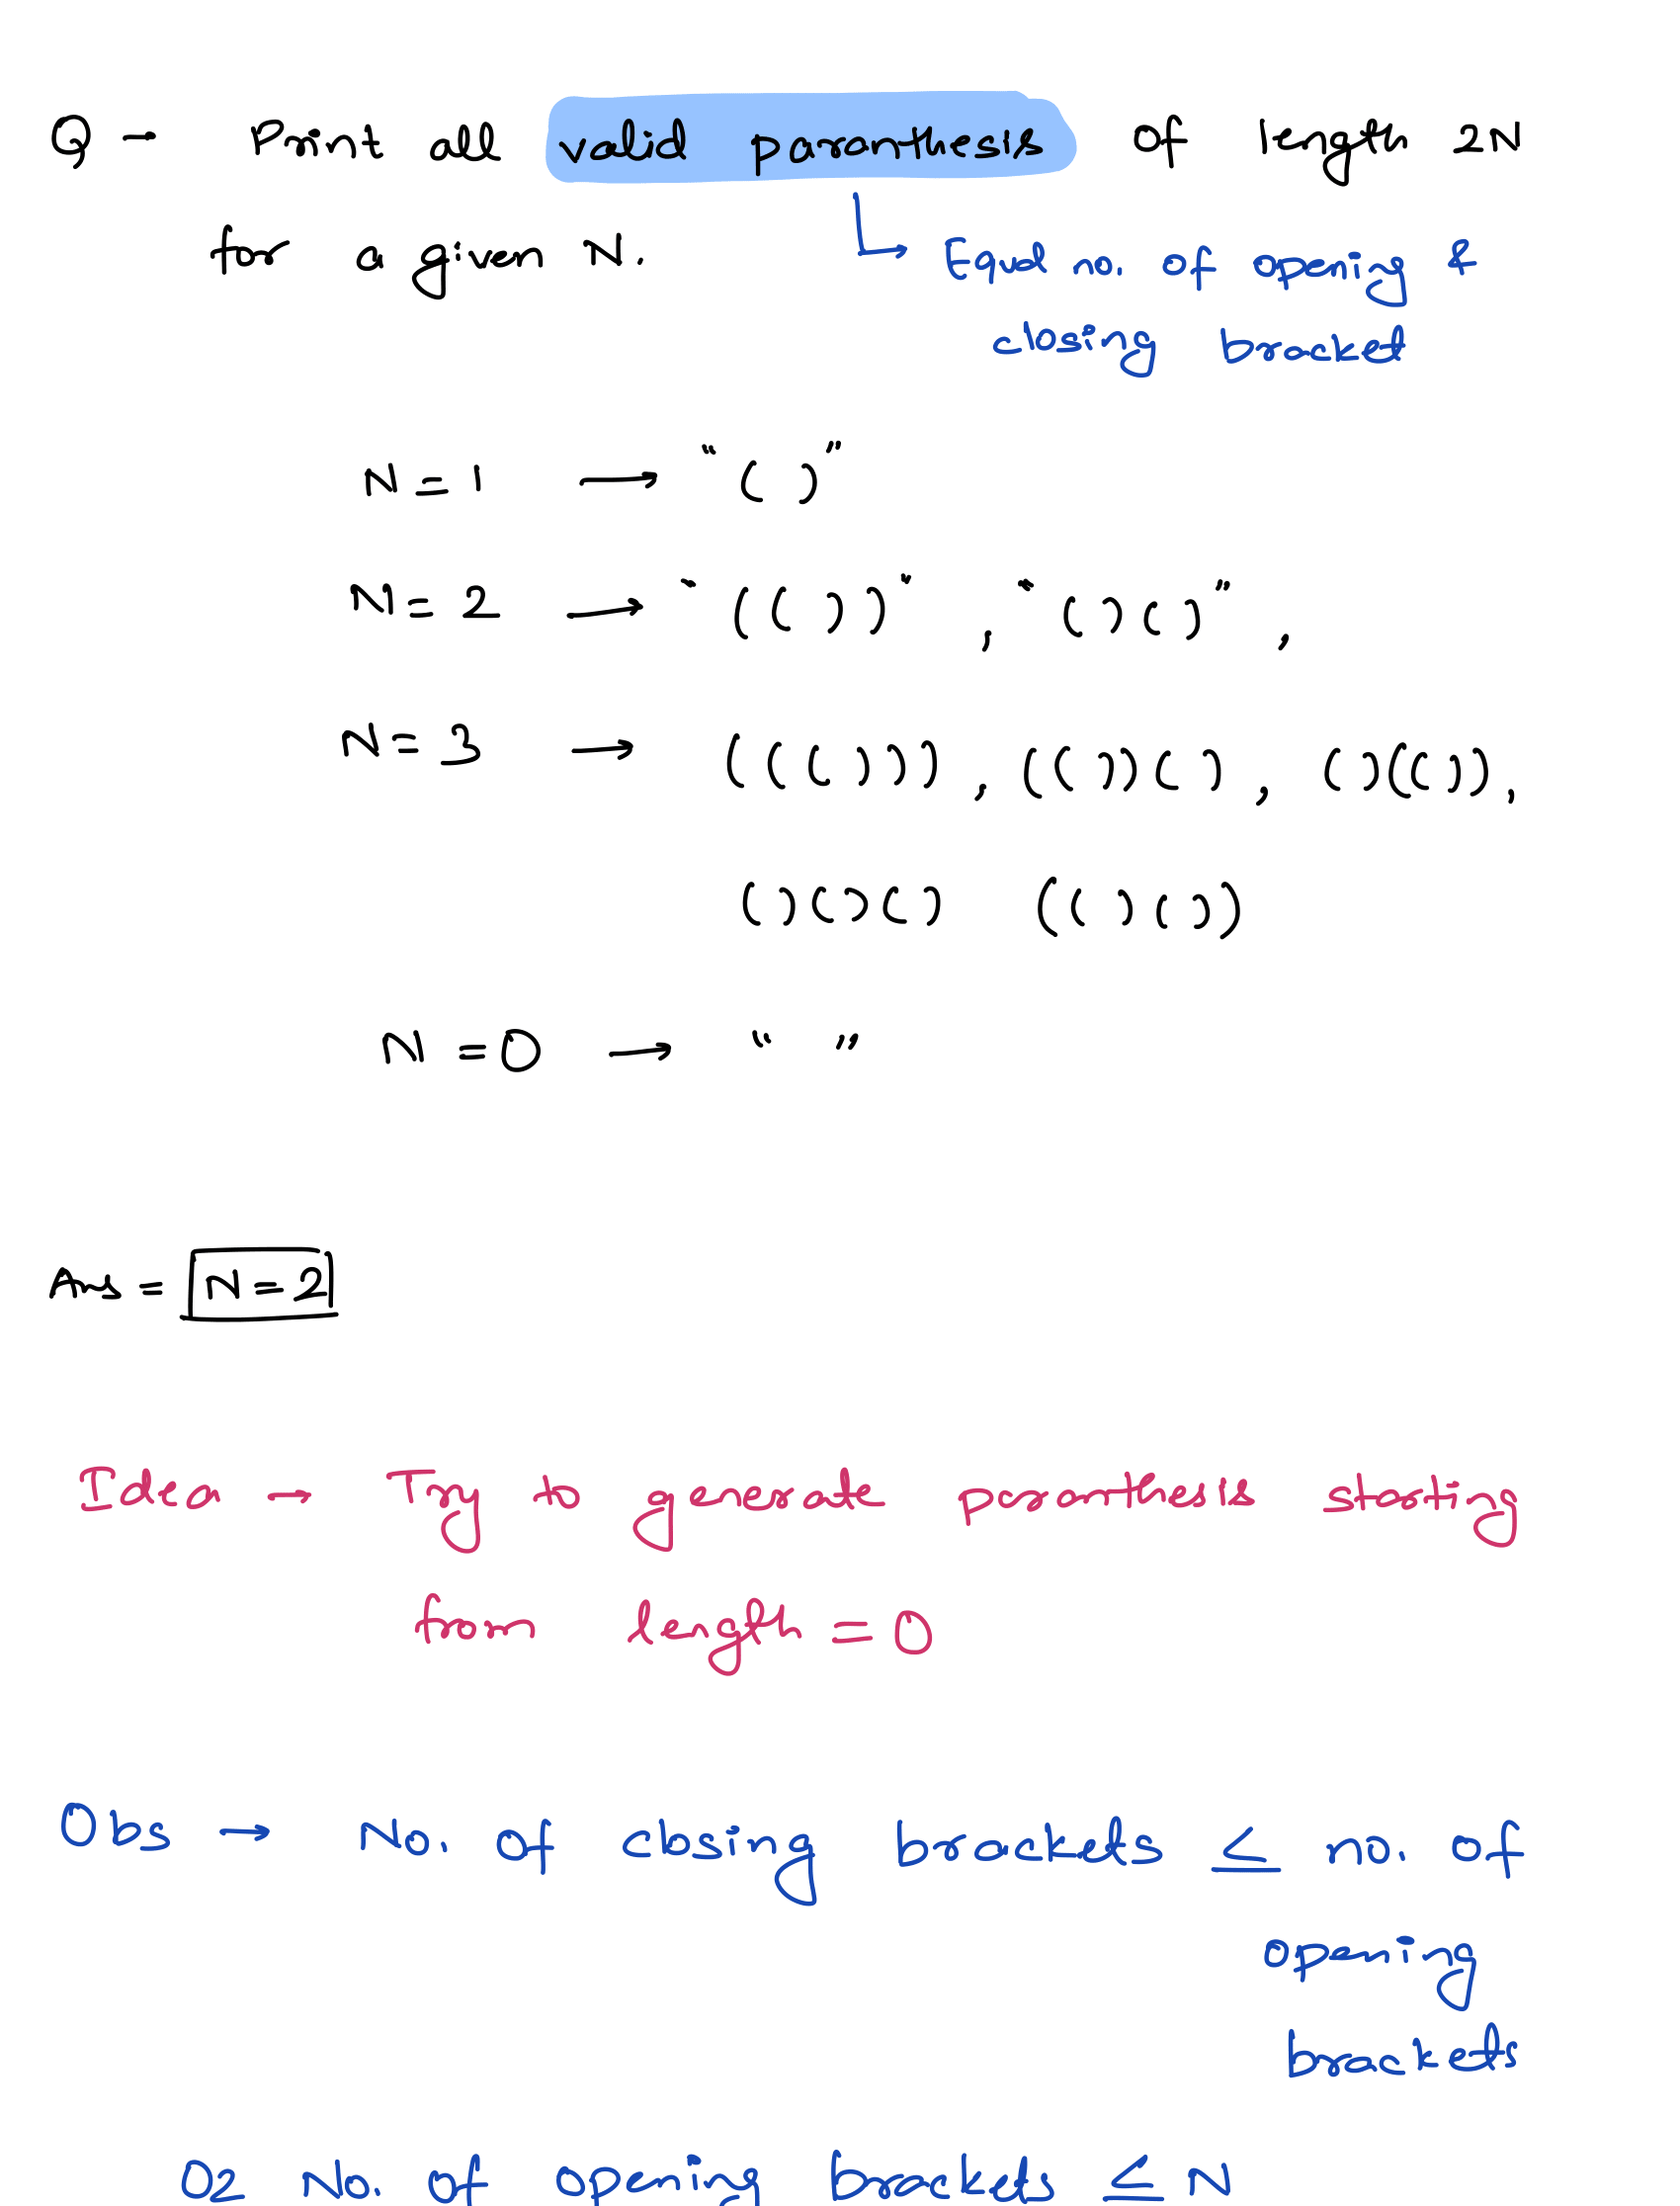 Q - Print all valid paranthesis of length 2N
for a given N.
Equal no. of opening &
closing bracket
N = 1 → "( )"
N = 2 → "(( ))" , "( )( )" ,
N = 3 → ((( ))) , (( ))( ) , ( )(( )) ,
( )( )( ) (( )( ))
N = 0 → " "
Ans = N = 2
Idea → Try to generate paranthesis starting
from length = 0
Obs → No. of closing brackets ≤ no. of
opening
brackets
O2 No. of opening brackets ≤ N